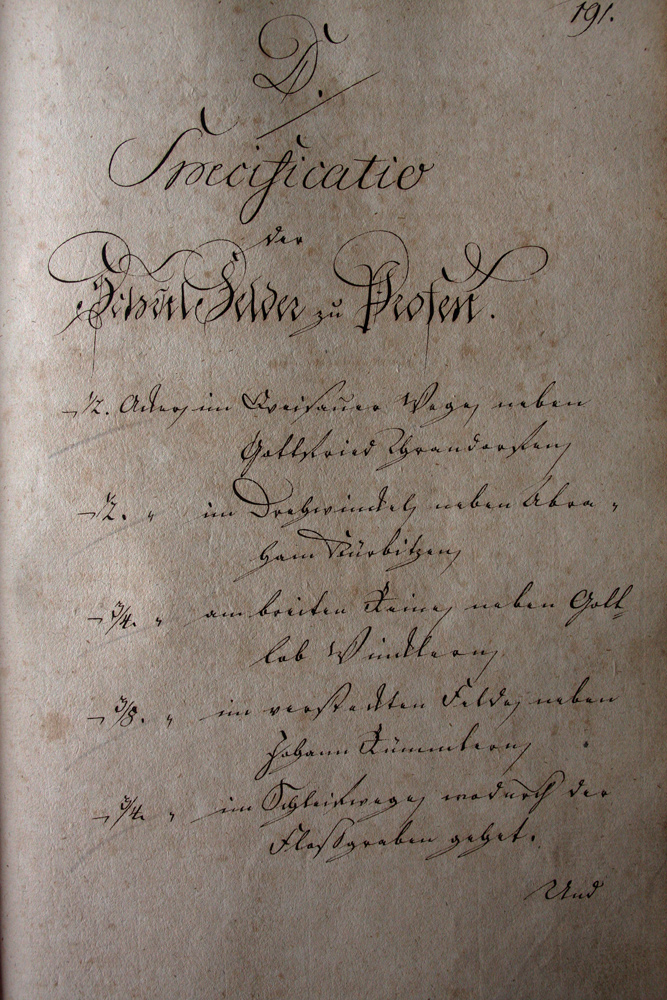 191.
D.
Specificatio
der
Schul Felder zu Profen.
– 1/2. Acker, im Weg, neben
Gottfried
– 1/2. " im Drehwinkel, neben Abra-
ham Kürbitzen,
– 3/4. " am breiten Reine, neben Gott-
lob Winklern,
– 3/8. " im versteckten Felde, neben
Johann Kümmlern,
– 3/4. " im Schleifwege, wodurch der
Flossgraben gehet.
Und